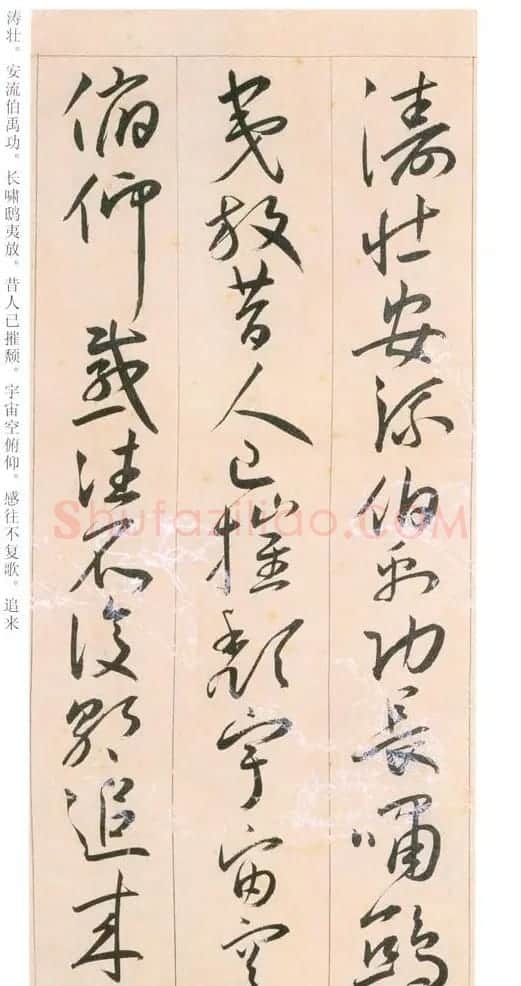 濤壯安流伯禹功長嘯鴟
夷放昔人已摧頹宇宙空
俯仰感往不復歌追来
涛壮。安流伯禹功。长啸鸱夷放。昔人已摧颓。宇宙空俯仰。感往不复歌。追来
Shufaziliao.COM